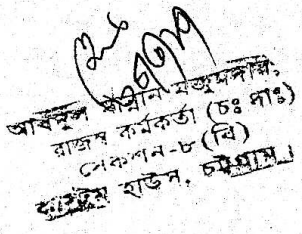 আবদুল মান্নান মজুমদার,
রাজস্ব কর্মকর্তা (চঃ দাঃ)
সেকশন-৮ (বি)
কাস্টম হাউস, চট্টগ্রাম।